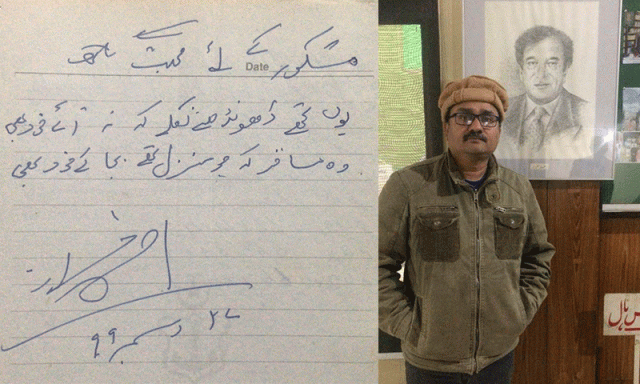 مشکور کے لئے محبت ساتھ
Date
یوں تجھے ڈھونڈھنے نکلے کہ نہ آئے خود بھی
وہ مسافر کہ جو منزل تھے بجائے خود بھی
احمد فراز
دسمبر ۹۹
ہال